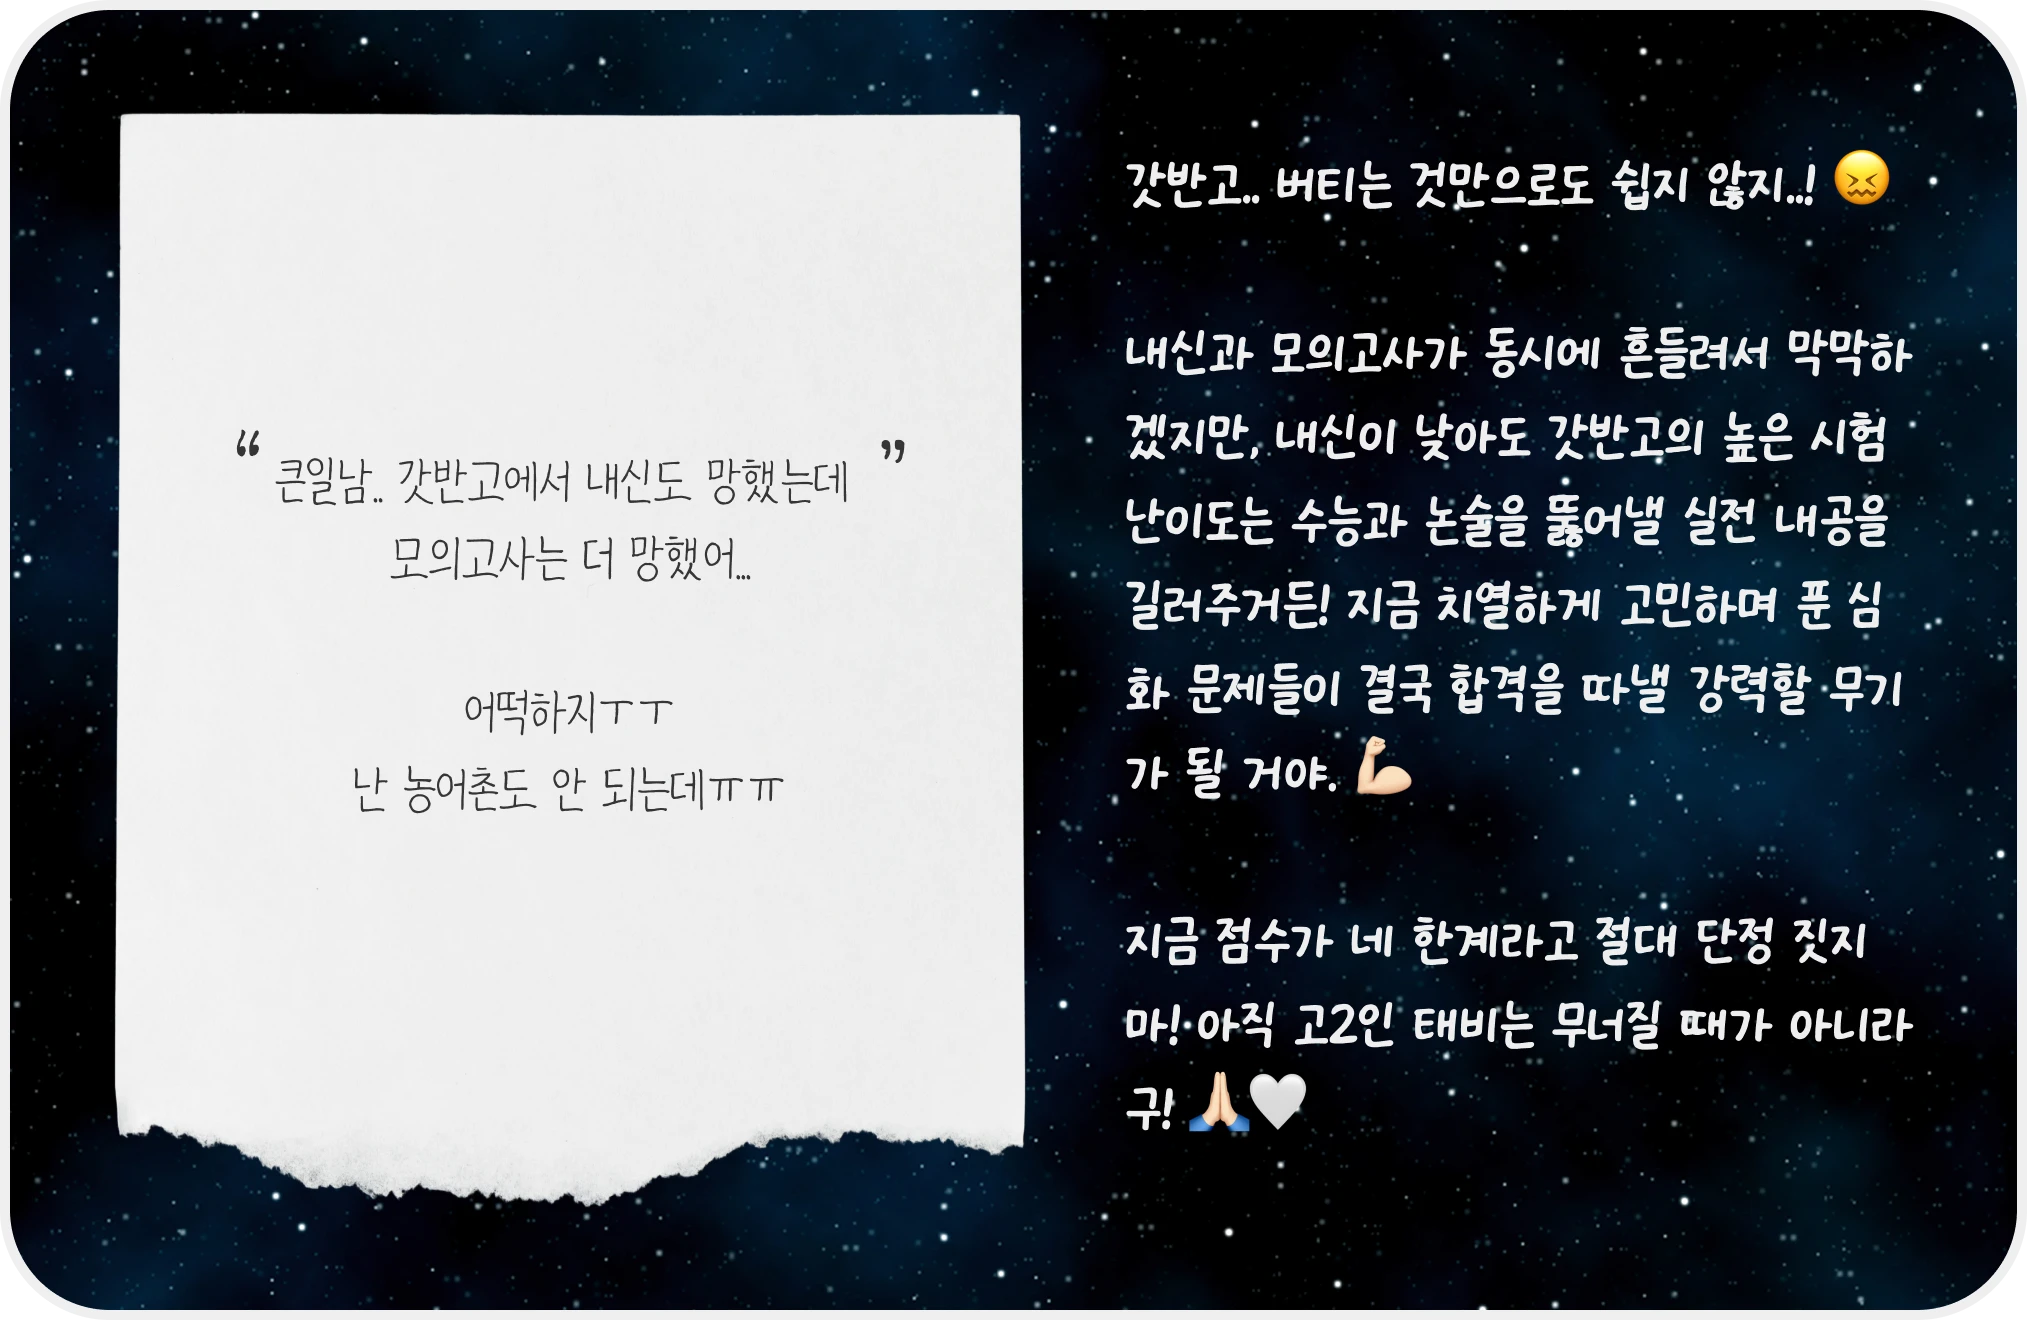 “ 큰일남.. 갓반고에서 내신도 망했는데 ”
모의고사는 더 망했어...
어떡하지ㅜㅜ
난 농어촌도 안 되는데ㅠㅠ
갓반고.. 버티는 것만으로도 쉽지 않지..! 😖
내신과 모의고사가 동시에 흔들려서 막막하
겠지만, 내신이 낮아도 갓반고의 높은 시험
난이도는 수능과 논술을 뚫어낼 실전 내공을
길러주거든! 지금 치열하게 고민하며 푼 심
화 문제들이 결국 합격을 따낼 강력할 무기
가 될 거야. 💪🏻
지금 점수가 네 한계라고 절대 단정 짓지
마! 아직 고2인 태비는 무너질 때가 아니라
구! 🙏🏻🤍